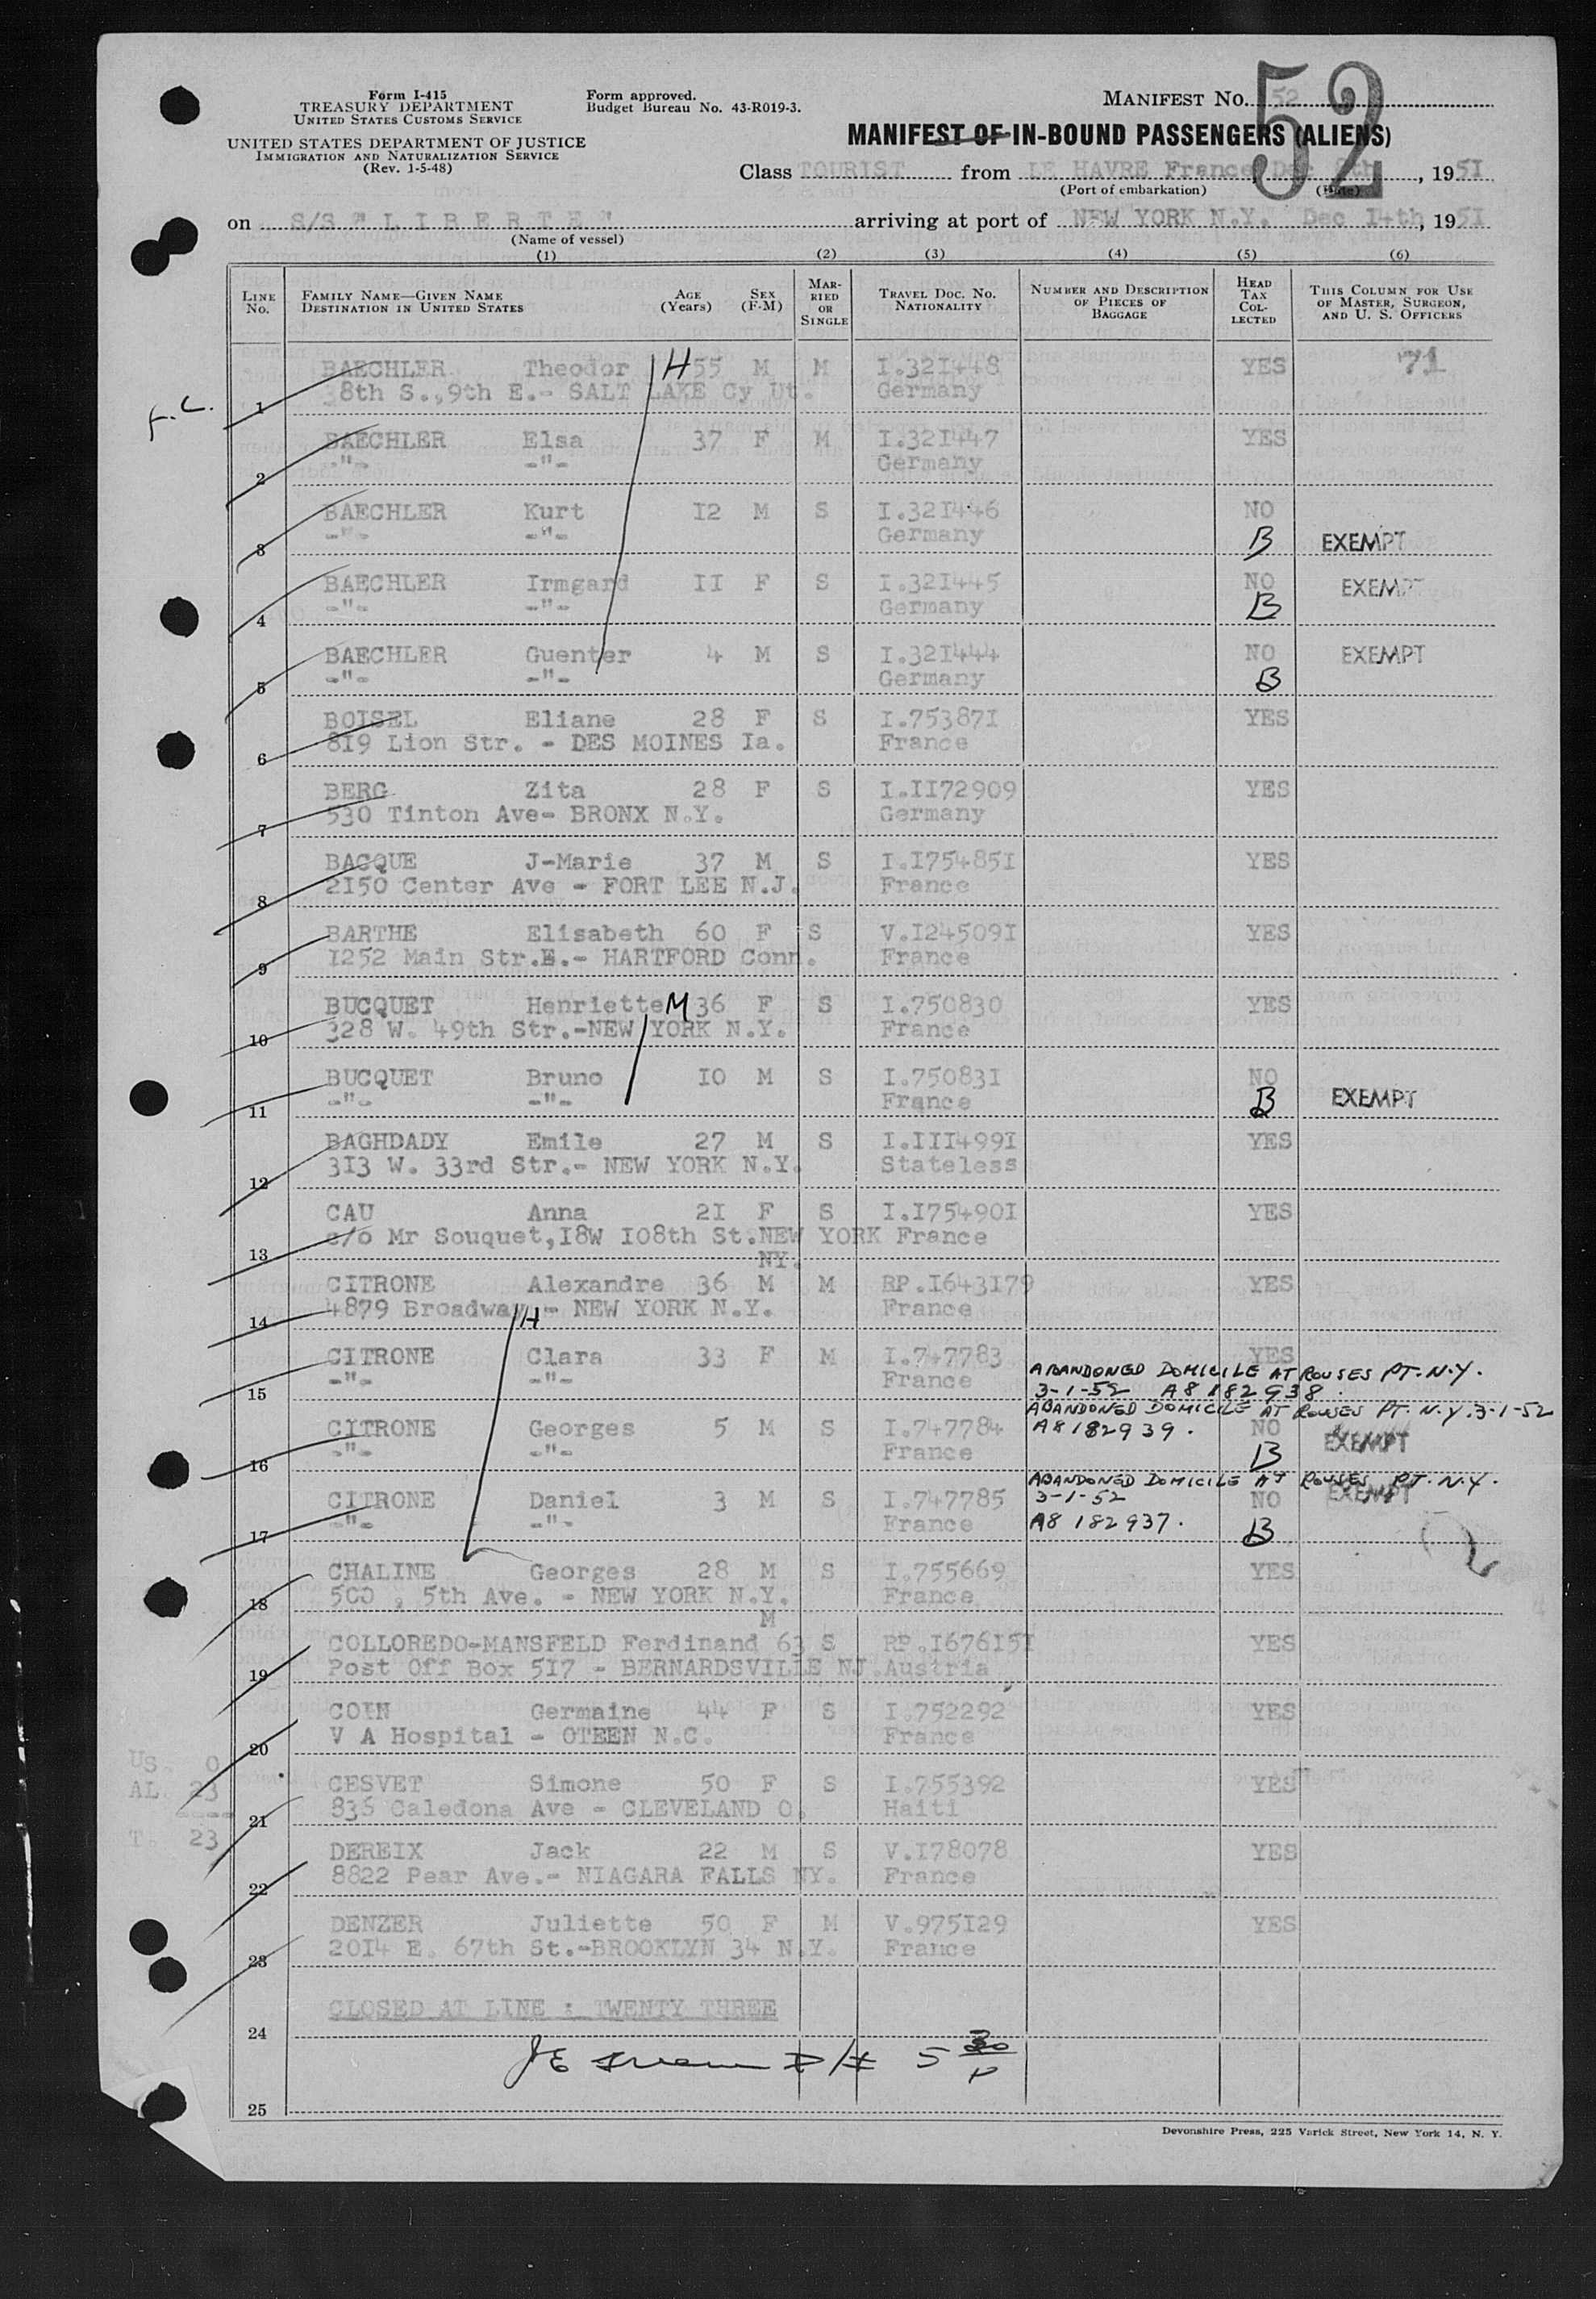 Form I-415
TREASURY DEPARTMENT
UNITED STATES CUSTOMS SERVICE
UNITED STATES DEPARTMENT OF JUSTICE
IMMIGRATION AND NATURALIZATION SERVICE
(Rev. 1-5-48)
Form approved.
Budget Bureau No. 43-R019-3.
MANIFEST No. 52
52
MANIFEST OF IN-BOUND PASSENGERS (ALIENS)
Class TOURIST from LE HAVRE France, Dec 8th, 1951
(Port of embarkation) (Date)
on S/S " L I B E R T E " arriving at port of NEW YORK N.Y. Dec 14th, 1951
(Name of vessel)
(1) (2) (3) (4) (5) (6)
LINE No. FAMILY NAME—GIVEN NAME DESTINATION IN UNITED STATES AGE (Years) SEX (F-M) MARRIED OR SINGLE TRAVEL DOC. No. NATIONALITY NUMBER AND DESCRIPTION OF PIECES OF BAGGAGE HEAD TAX COLLECTED THIS COLUMN FOR USE OF MASTER, SURGEON, AND U. S. OFFICERS
F.L.
BAECHLER Theodor H 55 M M I.321448 YES 71
1 38th S.,9th E.- SALT LAKE Cy Ut. Germany
BAECHLER Elsa 37 F M I.321447 YES
2 -"- -"- Germany
BAECHLER Kurt I2 M S I.321446 NO
3 -"- -"- Germany B EXEMPT
BAECHLER Irmgard II F S I.321445 NO EXEMPT
4 -"- -"- Germany B
BAECHLER Guenter 4 M S I.321444 NO EXEMPT
5 -"- -"- Germany B
BOISEL Eliane 28 F S I.753871 YES
6 819 Lion Str. - DES MOINES Ia. France
BERG Zita 28 F S I.II72909 YES
7 530 Tinton Ave- BRONX N.Y. Germany
BACQUE J-Marie 37 M S I.I754851 YES
8 2I50 Center Ave - FORT LEE N.J. France
BARTHE Elisabeth 60 F S V.I245091 YES
9 I252 Main Str.E.- HARTFORD Conn. France
BUCQUET Henriette M 36 F S I.750830 YES
10 328 W. 49th Str.-NEW YORK N.Y. France
BUCQUET Bruno I0 M S I.750831 NO
11 -"- -"- France B EXEMPT
BAGHDADY Emile 27 M S I.III4991 YES
12 3I3 W. 33rd Str.- NEW YORK N.Y. Stateless
CAU Anna 2I F S I.I754901 YES
13 c/o Mr Souquet,I8W I08th St.NEW YORK France
NY.
CITRONE Alexandre 36 M M RP.I643I79 YES
14 4879 Broadway - NEW YORK N.Y. France
H
CITRONE Clara 33 F M I.747783 YES
15 -"- -"- France
ABANDONED DOMICILE AT ROUSES PT. N.Y.
3-1-52 A8 182938.
ABANDONED DOMICILE AT ROUSES PT. N.Y. 3-1-52
CITRONE Georges 5 M S I.747784 A8182939. NO
16 -"- -"- France B EXEMPT
ABANDONED DOMICILE AT ROUSES PT. N.Y.
CITRONE Daniel 3 M S I.747785 3-1-52 NO EXEMPT
17 -"- -"- France A8 182937. B
CHALINE Georges 28 M S I.755669 YES
18 500 , 5th Ave. - NEW YORK N.Y. France
M
COLLOREDO-MANSFELD Ferdinand 63 S RP.I676I5I YES
19 Post Off Box 5I7 - BERNARDSVILLE NJ. Austria
COIN Germaine 44 F S I.752292 YES
20 V A Hospital - OTEEN N.C. France
US. 0
AL. 23
T. 23
CESVET Simone 50 F S I.755392 YES
21 836 Caledona Ave - CLEVELAND O. Haiti
DEREIX Jack 22 M S V.I78078 YES
22 8822 Pear Ave.- NIAGARA FALLS NY. France
DENZER Juliette 50 F M V.975I29 YES
23 20I4 E. 67th St.-BROOKLYN 34 N.Y. France
CLOSED AT LINE : TWENTY THREE
24
5 30
P
25
Devonshire Press, 225 Varick Street, New York 14, N. Y.